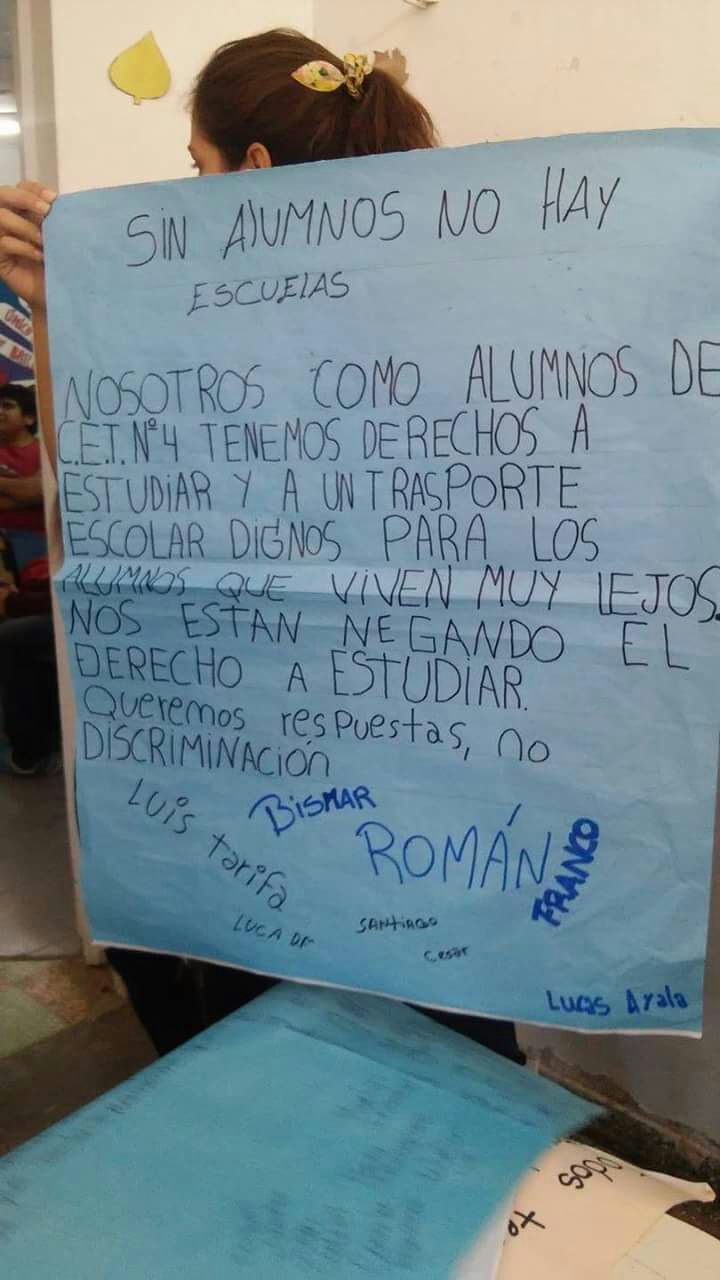 SIN AlUMNOS NO HAY
ESCUElAS
NOSOTROS COMO ALUMNOS DE
C.E.T. Nº4 TENEMOS DERECHOS A
ESTUDIAR Y A UN TRASPORTE
ESCOLAR DIGNOS PARA LOS
ALUMNOS QUE VIVEN MUY LEJOS.
NOS ESTAN NEGANDO EL
DERECHO A ESTUDIAR.
Queremos respuestas, no
DISCRIMINACIÓN
Luis tarifa
BISMAR
ROMÁN
FRANCO
LUCA DF
SANTIAGO
Cesar
Lucas Ayala